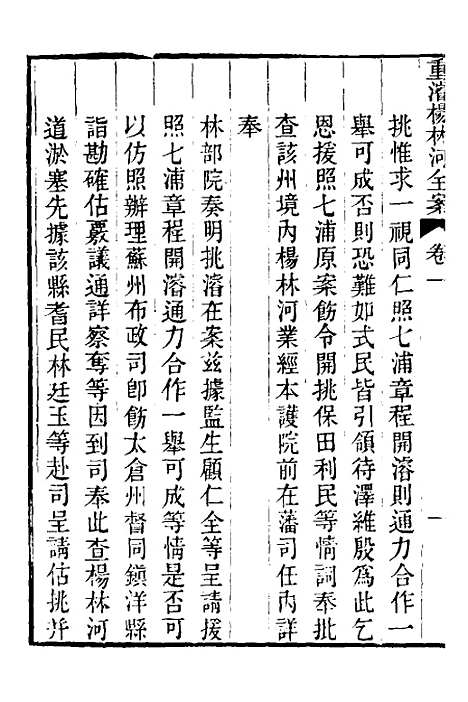 重濬楊林河全案 卷一 一
挑惟求一視同仁照七浦章程開濬則通力合作一
舉可成否則恐難如式民皆引領待澤維殷爲此乞
恩援照七浦原案飭令開挑保田利民等情詞奉批
查該州境內楊林河業經本護院前在藩司任內詳
奉
林部院奏明挑濬在案兹據監生顧仁全等呈請援
照七浦章程開濬通力合作一舉可成等情是否可
以仿照辦理蘇州布政司卽飭太倉州督同鎮洋縣
詣勘確估覈議通詳察奪等因到司奉此查楊林河
道淤塞先據該縣耆民林廷玉等赴司呈請估挑幷